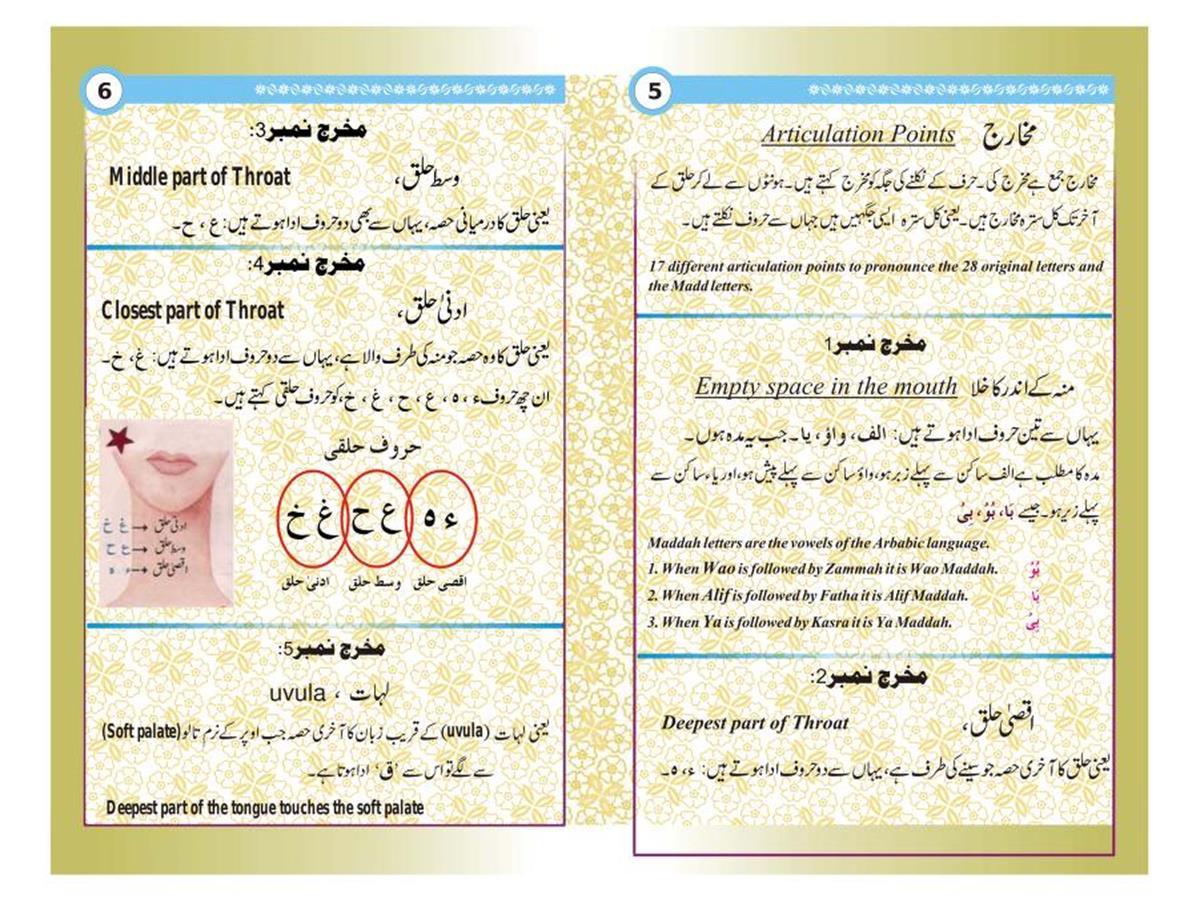 5
Articulation Points مخارج
مخارج جمع ہے مخرج کی۔ حرف کے نکلنے کی جگہ کو مخرج کہتے ہیں۔ ہونٹوں سے لے کر حلق کے
آخر تک کل سترہ مخارج ہیں۔ یعنی کل سترہ ایسی جگہیں ہیں جہاں سے حروف نکلتے ہیں۔
17 different articulation points to pronounce the 28 original letters and
the Madd letters.
مخرج نمبر1
Empty space in the mouth منہ کے اندر کا خلا
یہاں سے تین حروف ادا ہوتے ہیں: الف، واؤ، یا۔ جب یہ مدہ ہوں۔
مدہ کا مطلب ہے الف ساکن سے پہلے زبر ہو، واؤ ساکن سے پہلے پیش ہو، اور یاء ساکن سے
پہلے زیر ہو۔ جیسے بَا، بُوْ، بِیْ
Maddah letters are the vowels of the Arbabic language.
1. When Wao is followed by Zammah it is Wao Maddah. بُوْ
2. When Alif is followed by Fatha it is Alif Maddah. بَا
3. When Ya is followed by Kasra it is Ya Maddah. بِیْ
مخرج نمبر2:
Deepest part of Throat اقصیٰ حلق،
یعنی حلق کا آخری حصہ جو سینے کی طرف ہے، یہاں سے دو حروف ادا ہوتے ہیں: ء، ہ۔
6
مخرج نمبر3:
Middle part of Throat وسط حلق،
یعنی حلق کا درمیانی حصہ، یہاں سے بھی دو حروف ادا ہوتے ہیں: ع، ح۔
مخرج نمبر4:
Closest part of Throat ادنیٰ حلق،
یعنی حلق کا وہ حصہ جو منہ کی طرف والا ہے، یہاں سے دو حروف ادا ہوتے ہیں: غ، خ۔
ان چھ حروف ء، ہ، ع، ح، غ، خ، کو حروف حلقی کہتے ہیں۔
حروف حلقی
ء ہ ع ح غ خ
اقصی حلق وسط حلق ادنیٰ حلق
ادنیٰ حلق → غ خ
وسط حلق → ع ح
اقصیٰ حلق → ء ہ
مخرج نمبر5:
لہات ، uvula
یعنی لہات (uvula) کے قریب زبان کا آخری حصہ جب اوپر کے نرم تالو (Soft palate)
سے لگے تو اس سے ’ق‘ ادا ہوتا ہے۔
Deepest part of the tongue touches the soft palate